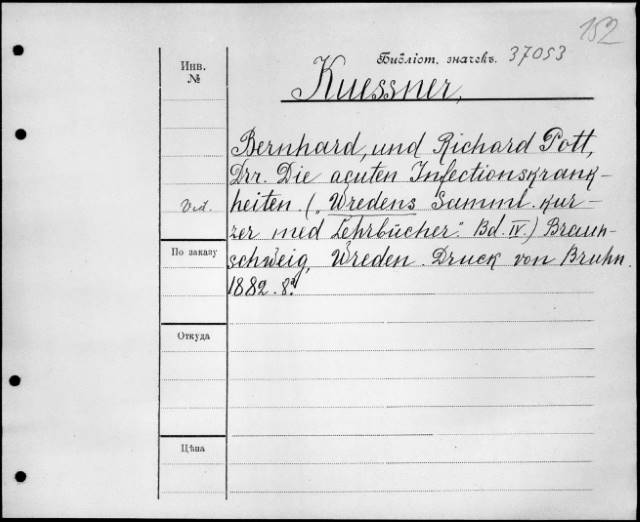 152
Библіот. значекъ. 37053
Инв.
№
Kuessner,
Bernhard, und Richard Pott,
Drr. Die acuten Infectionskrank-
heiten. (Wredens Samml. kur-
zer med Lehrbücher. Bd. IV.) Braun-
schweig, Wreden. Druck von Bruhn.
1882. 8°.
По заказу
Откуда
Цѣна